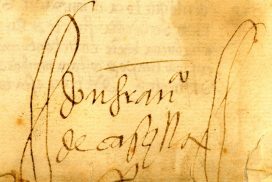 don fran^co
de castylla